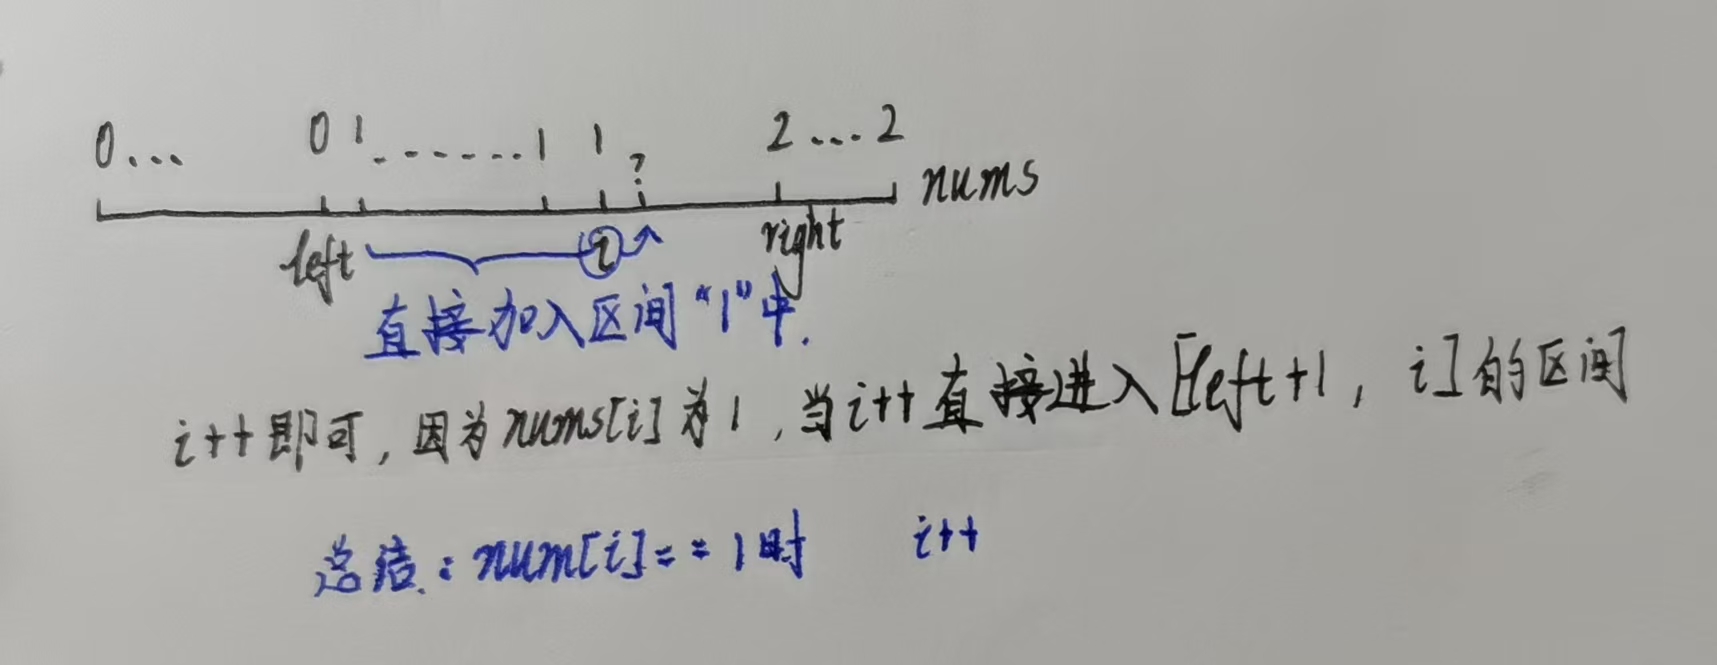 0... 0 1.......1 1 ? 2....2
nums
left i right
直接加入区间“1”中.
i++即可,因为nums[i]为1,当i++直接进入[left+1, i]的区间
总结:num[i]==1时 i++